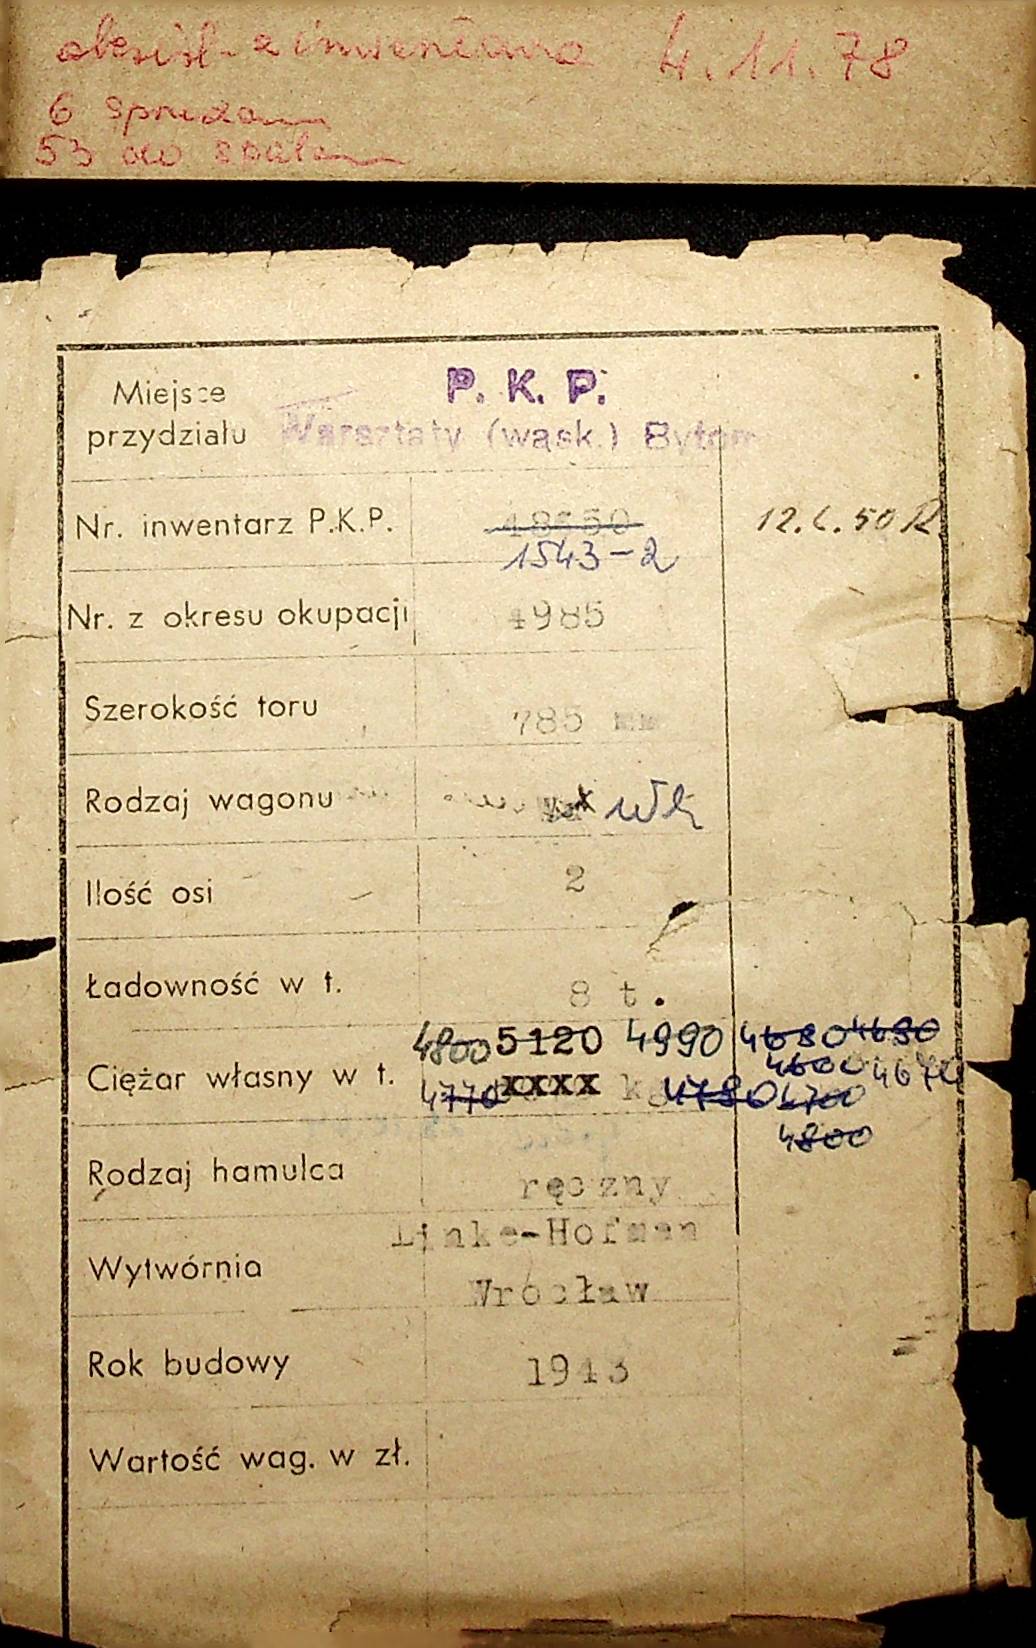 z inwentarza 4.11.78
6 sprzedam
53 do
Miejsce przydziału
P. K. P.
Warsztaty (wąsk.) Bytom
Nr. inwentarz P.K.P.
1543-2
12. 50 R
Nr. z okresu okupacji 4985
Szerokość toru 785 mm
Rodzaj wagonu Wk
Ilość osi 2
Ładowność w t. 8 t.
4800 5120 4990 4680 4690
4600 4670
Ciężar własny w t. 4770 xxxx kg 4780 4700
4800
Rodzaj hamulca ręczny
Wytwórnia Linke-Hofman
Wrocław
Rok budowy 1943
Wartość wag. w zł.